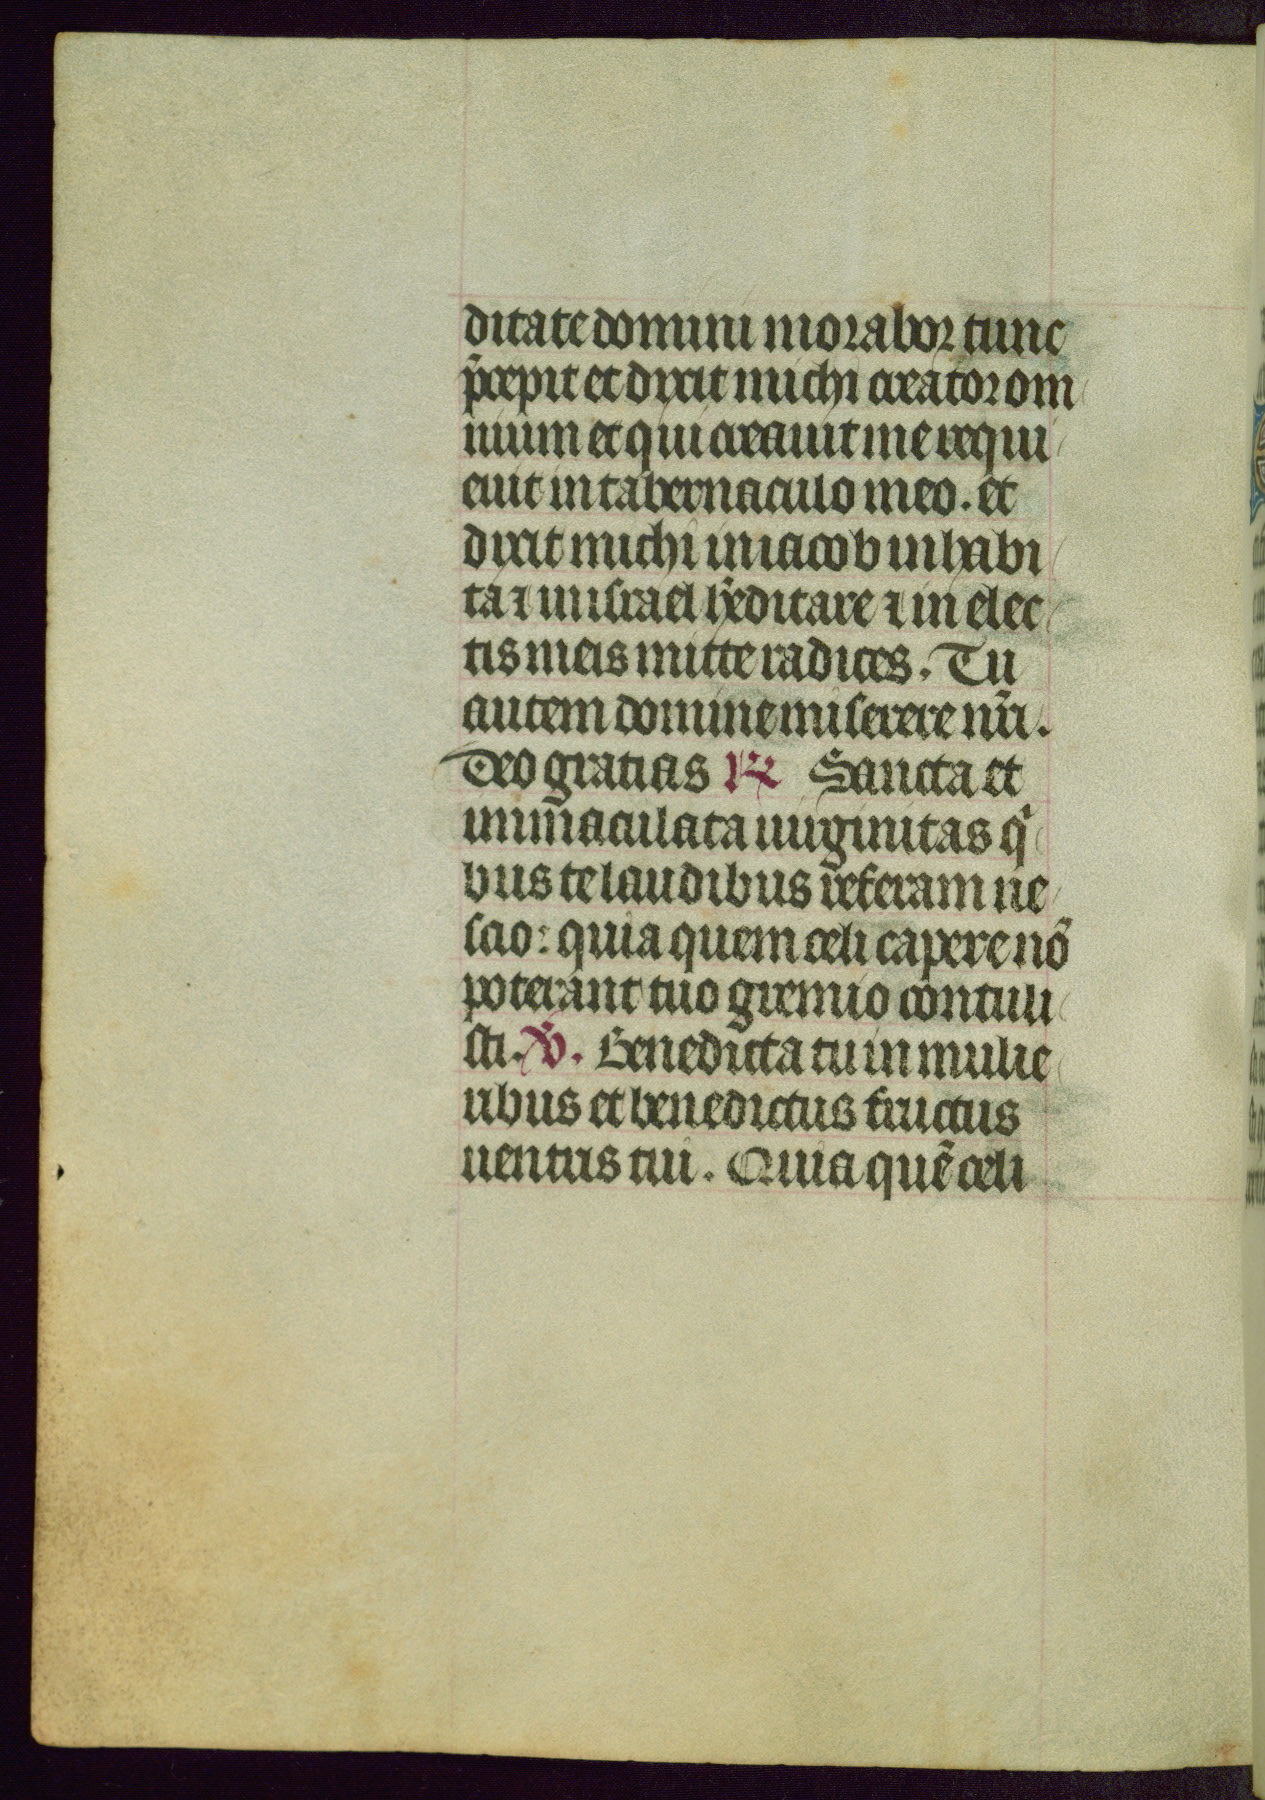 ditate domini morabor tunc
p̄cepit et dixit michi creator om
nium et qui creauit me requi
euit in tabernaculo meo. et
dixit michi in iacob inhabi
ta ⁊ in israel h̄editare ⁊ in elec
tis meis mitte radices. Tu
autem domine miserere nr̄i.
Deo gratias ℟ Sancta et
inmaculata uirginitas qⁱ
bus te laudibus referam ne
scio: quia quem celi capere nō
poterant tuo gremio contuli
sti. ℣. Benedicta tu in mulie
ribus et benedictus fructus
uentris tui. Quia quē celi